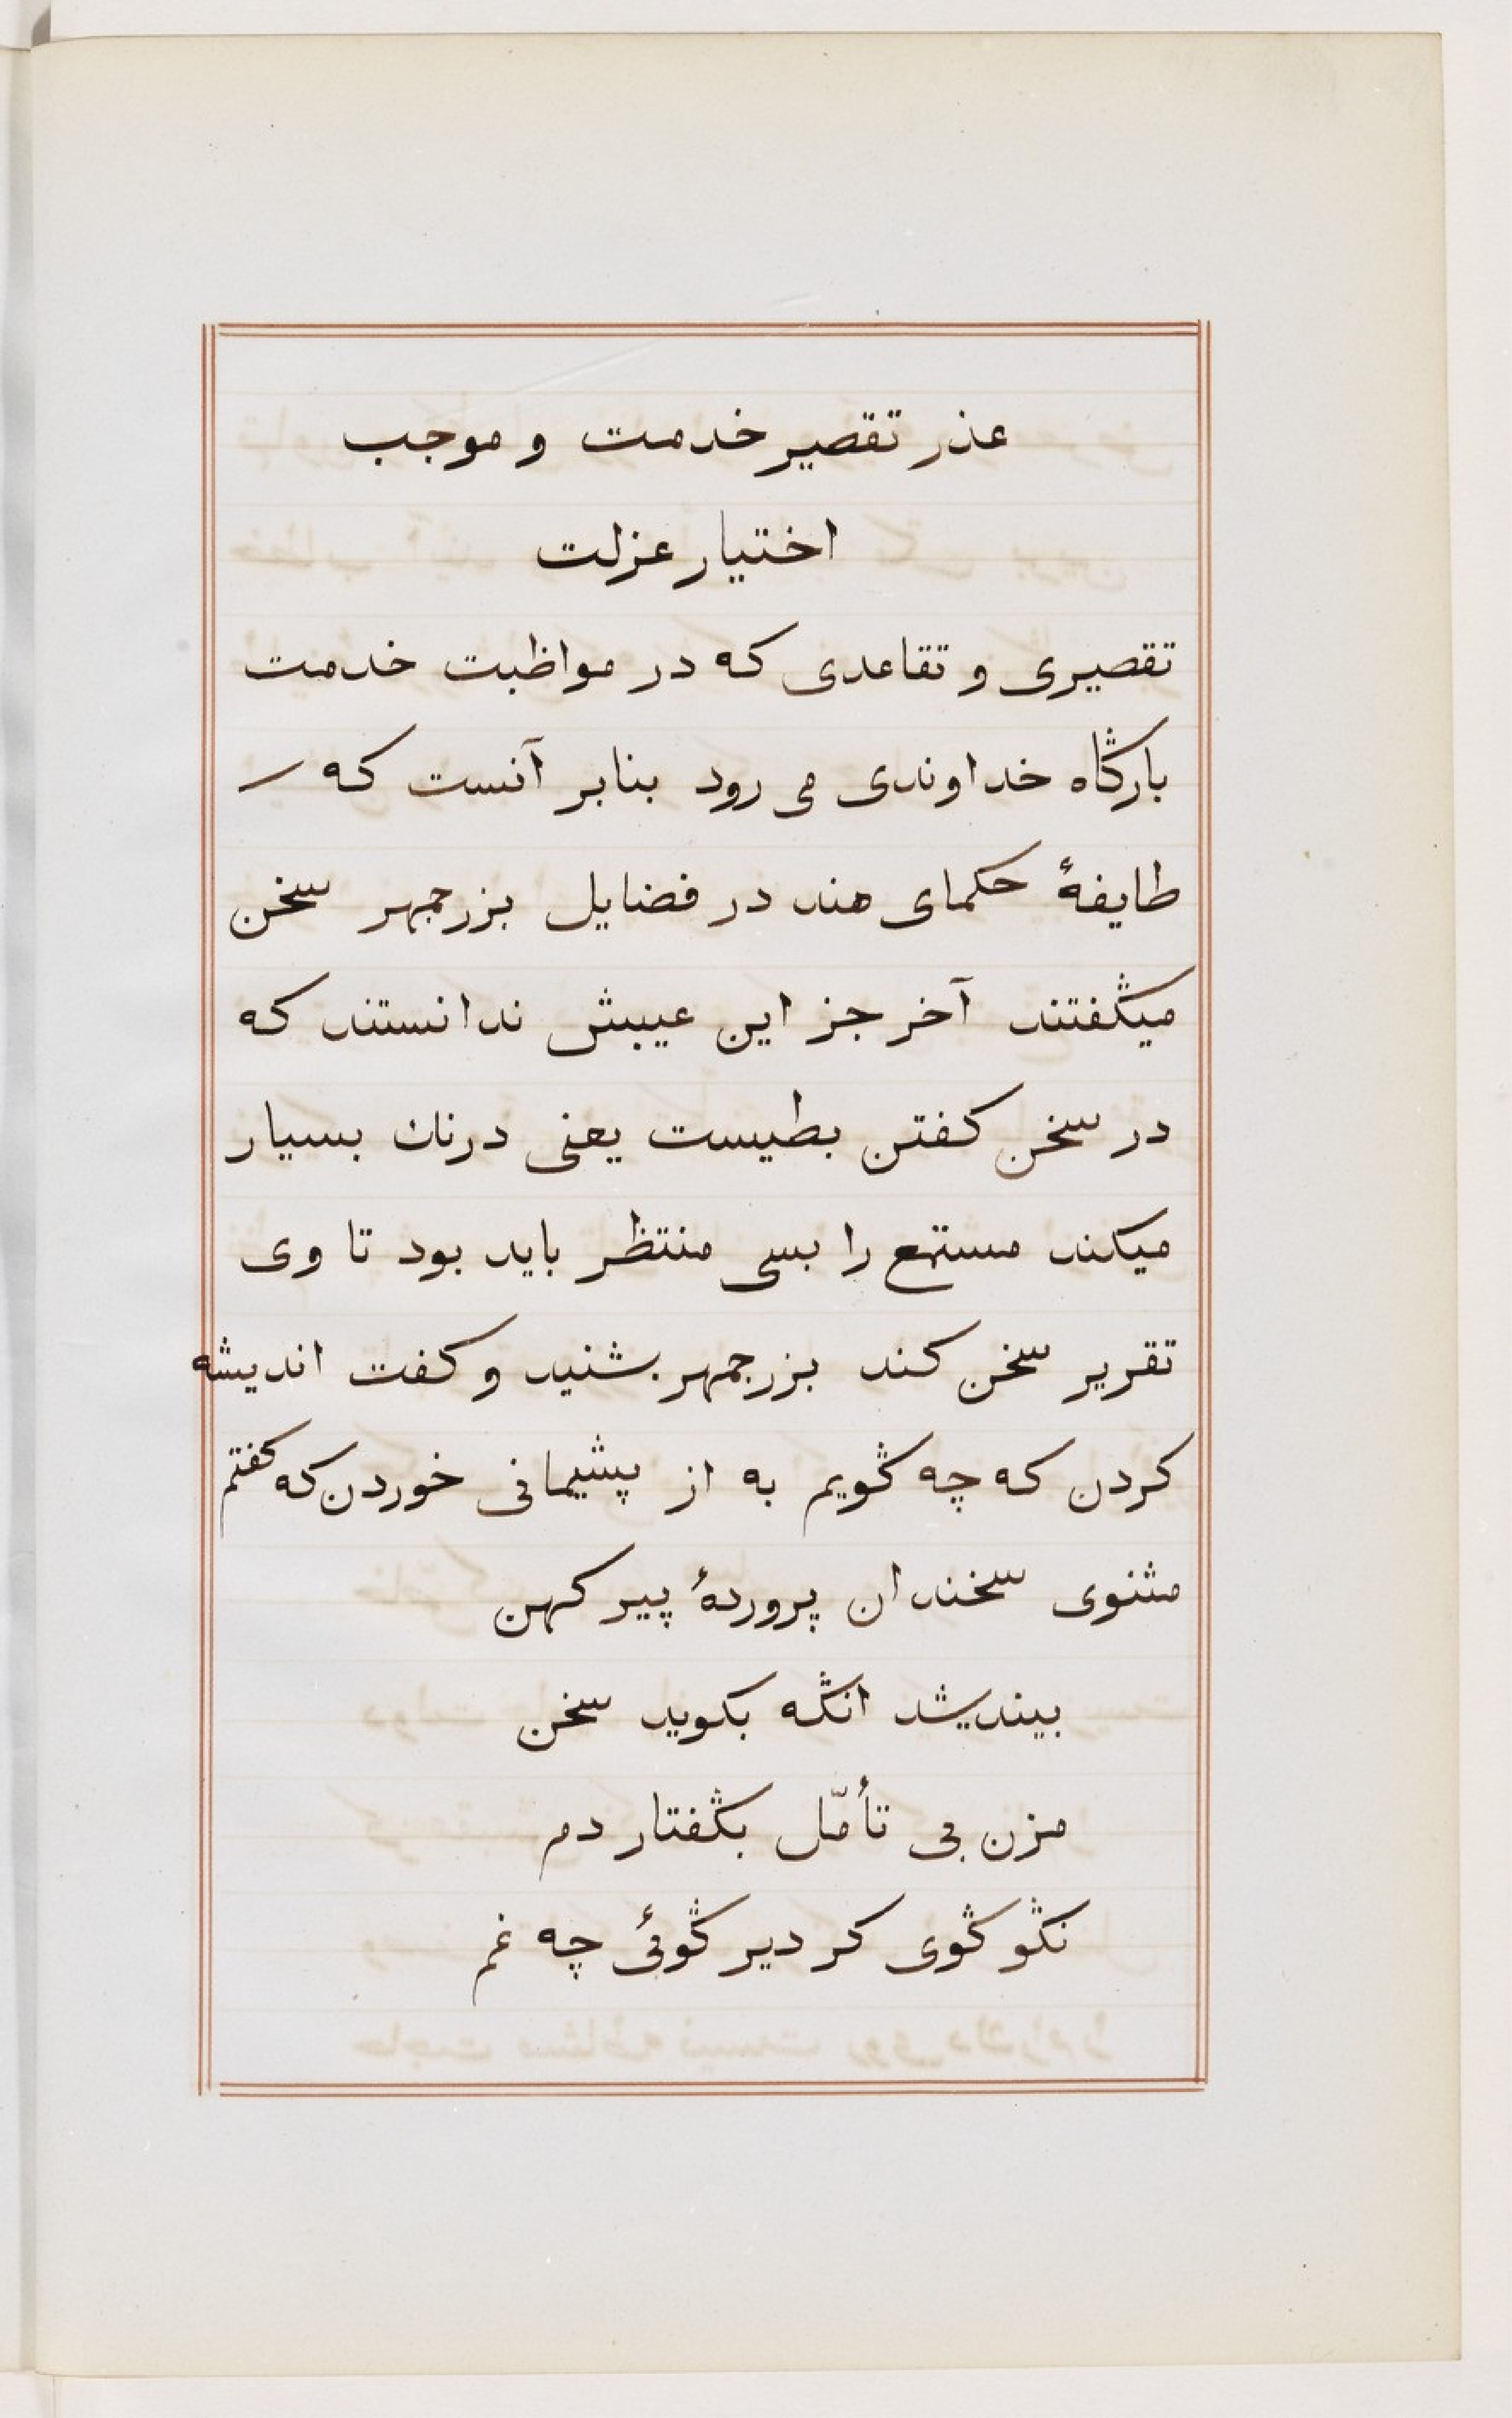 عذر تقصیر خدمت و موجب
اختیار عزلت
تقصیری و تقاعدی که در مواظبت خدمت
بارڭاه خداوندی می رود بنابر آنست که
طایفهٔ حکمای هند در فضایل بزرجمهر سخن
میڭفتند آخر جز این عیبش ندانستند که
در سخن کفتن بطیست یعنی درنك بسیار
میکند مستمع را بسی منتظر باید بود تا وی
تقریر سخن کند بزرجمهر بشنید و کفت اندیشه
کردن که چه ڭویم به از پشیمانی خوردن که کفتم
مثنوی سخندان پروردهٔ پیر کهن
بیندیشد انڭه بکوید سخن
مزن بی تأمّل بڭفتار دم
نڭو ڭوی کر دیر ڭوئی چه غم